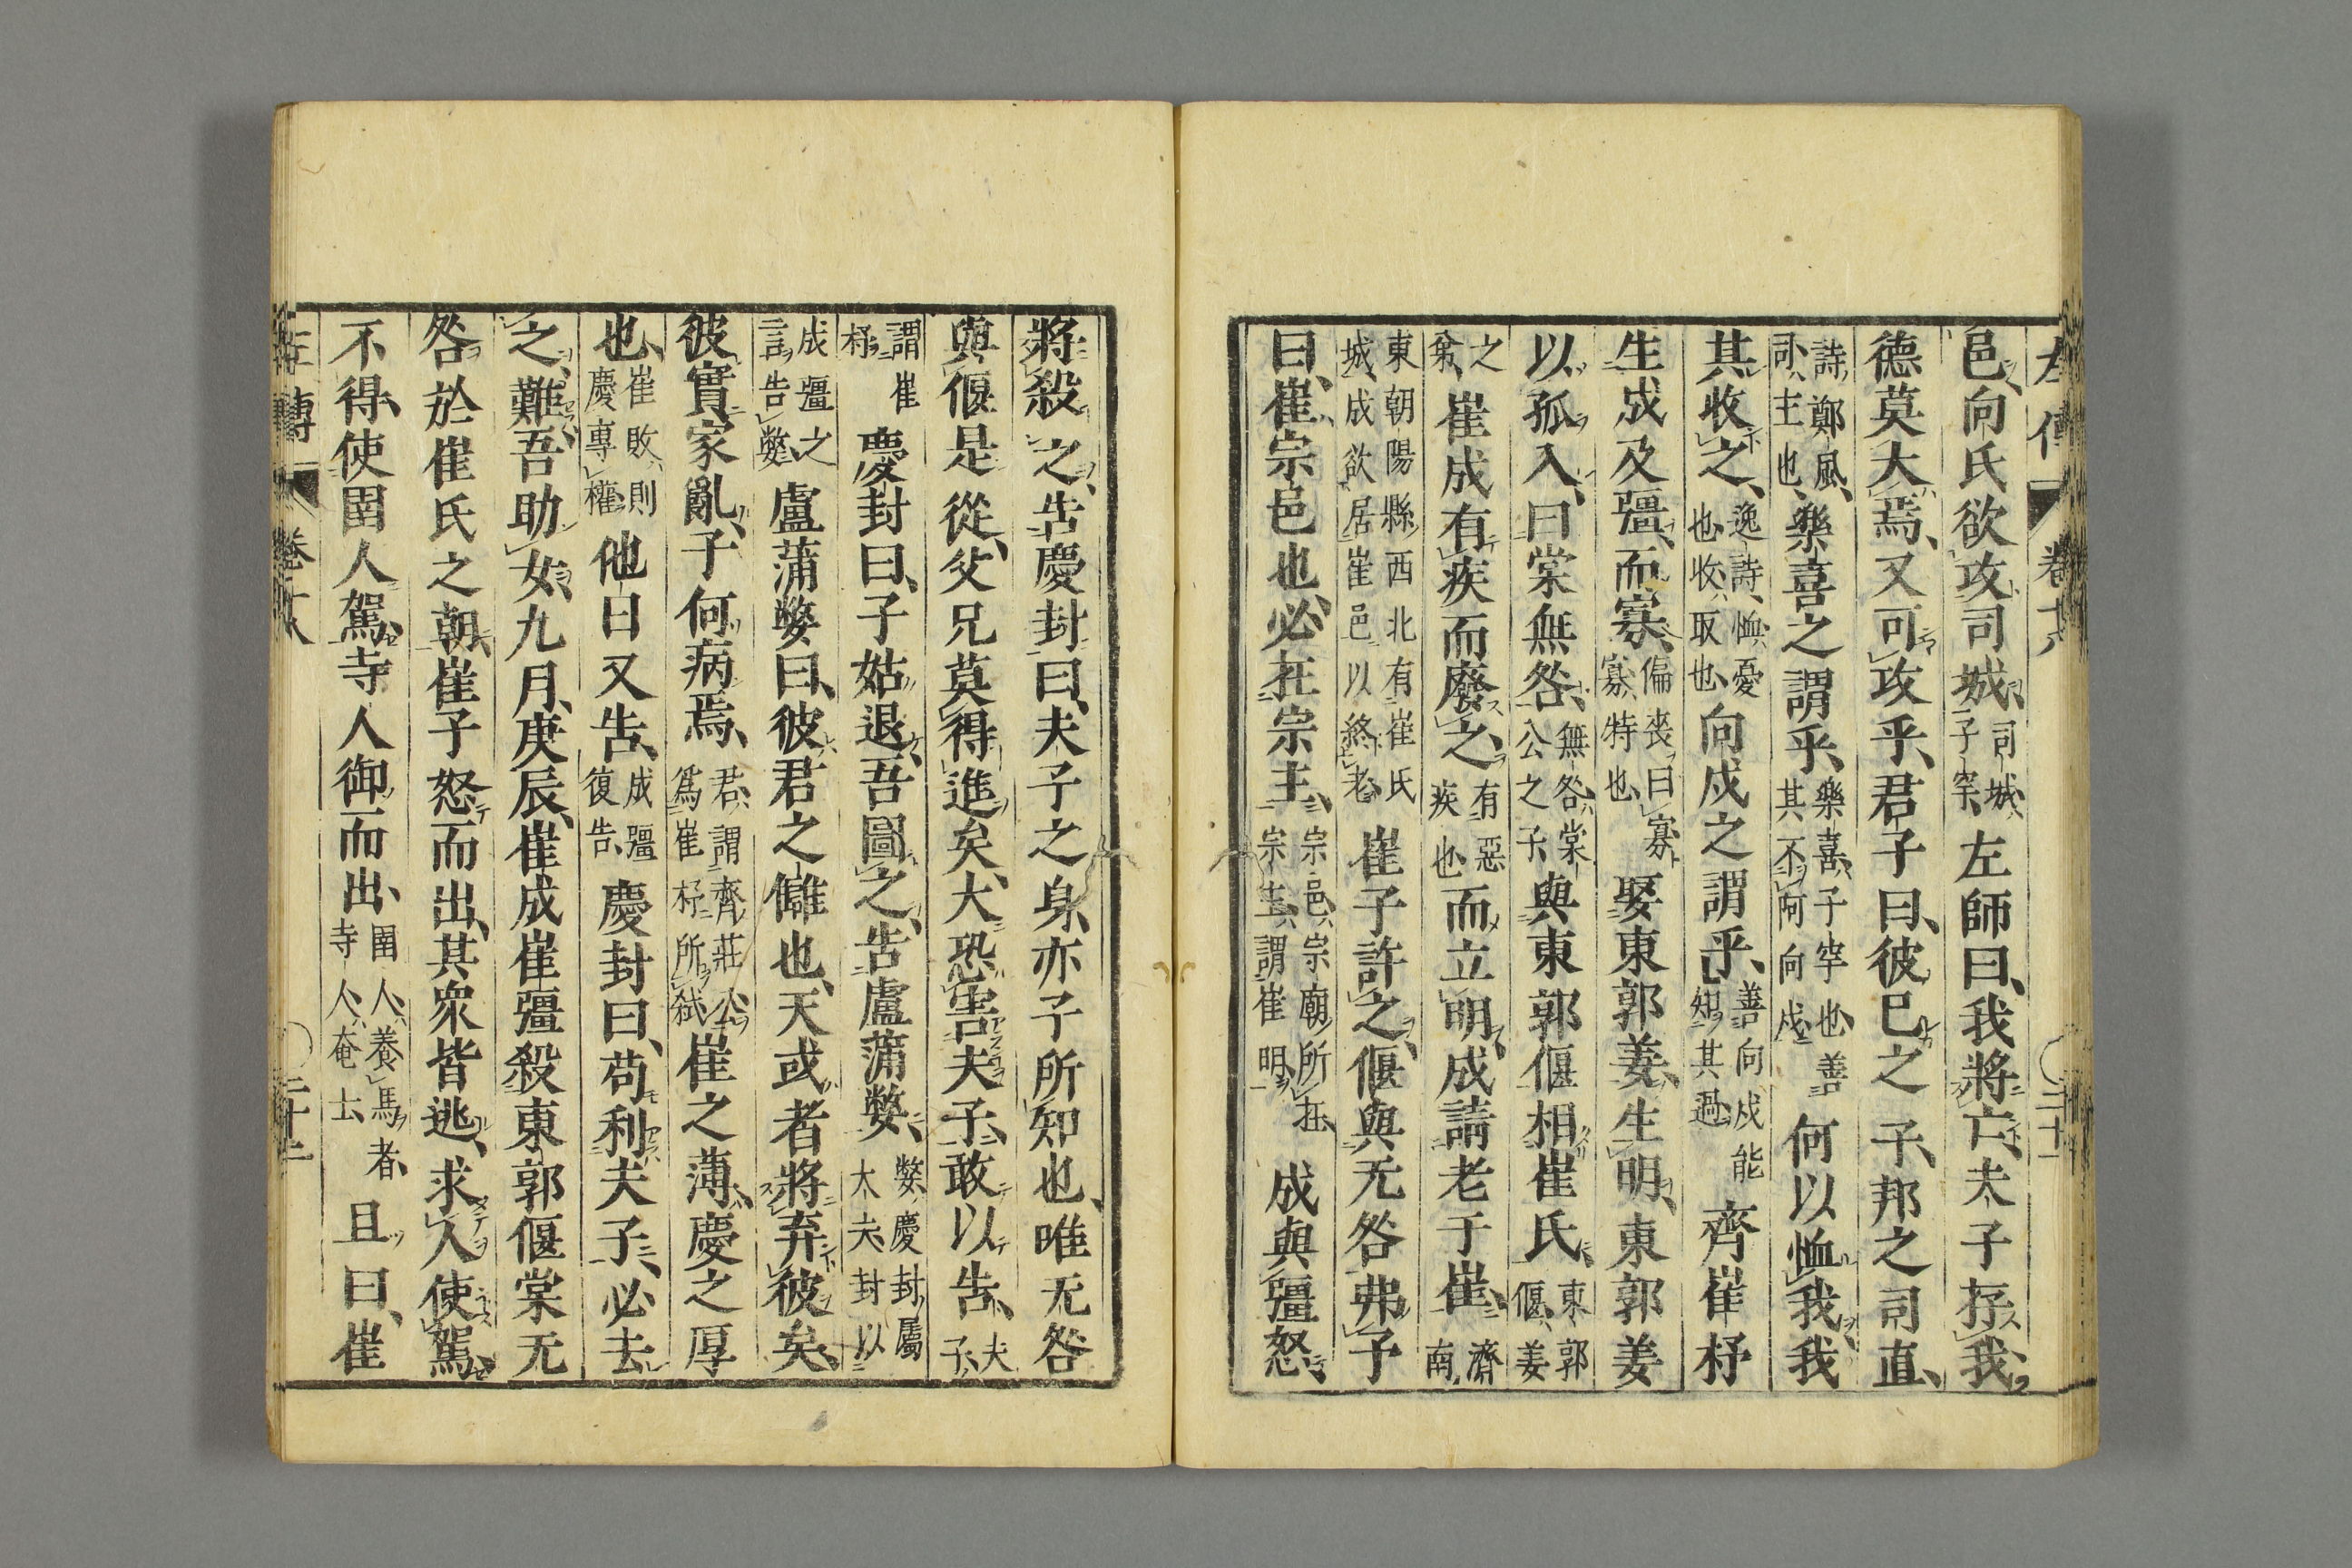 左傳 卷十八 〇二十一
邑、向氏欲攻司城、司城、子罕、左師曰、我將亡、夫子存我、
德莫大焉、又可攻乎、君子曰、彼己之子、邦之司直、
詩、鄭風、司、主也、樂喜之謂乎、樂喜、子罕也、善其不阿向戌、何以恤我、我
其收之、逸詩、恤、憂也、收、取也、向戌之謂乎、善向戌能知其過、齊崔杼
生成及彊、而寡、偏喪曰寡、寡、特也、娶東郭姜、生明、東郭姜
以孤入、曰棠無咎、無咎、棠公之子、與東郭偃相崔氏、東郭偃、姜
之弟、崔成有疾而廢之、有惡疾也、而立明、成請老于崔、濟南
東朝陽縣西北有崔氏城、成欲居崔邑以終老、崔子許之、偃與无咎弗予
曰、崔、宗邑也、必在宗主、宗邑、宗廟所在、宗主、謂崔明、成與彊怒、
將殺之、告慶封曰、夫子之身、亦子所知也、唯无咎
與偃是從、父兄莫得進矣、大恐害夫子、敢以告、夫子、
謂崔杼、慶封曰、子姑退、吾圖之、告盧蒲嫳、嫳、慶封屬大夫、封以
成彊之言告嫳、盧蒲嫳曰、彼君之讎也、天或者將弃彼矣、
彼實家亂、子何病焉、君、謂齊莊公、爲崔杼所弒、崔之薄、慶之厚
也、崔敗、則慶專權、他日又告、成彊復告、慶封曰、苟利夫子、必去
之、難、吾助女、九月、庚辰、崔成崔彊殺東郭偃棠无
咎於崔氏之朝、崔子怒而出、其衆皆逃、求人使駕、
不得、使圉人駕、寺人御而出、圉人、養馬者、寺人、奄士、且曰、崔
左傳 卷十八 〇二十二